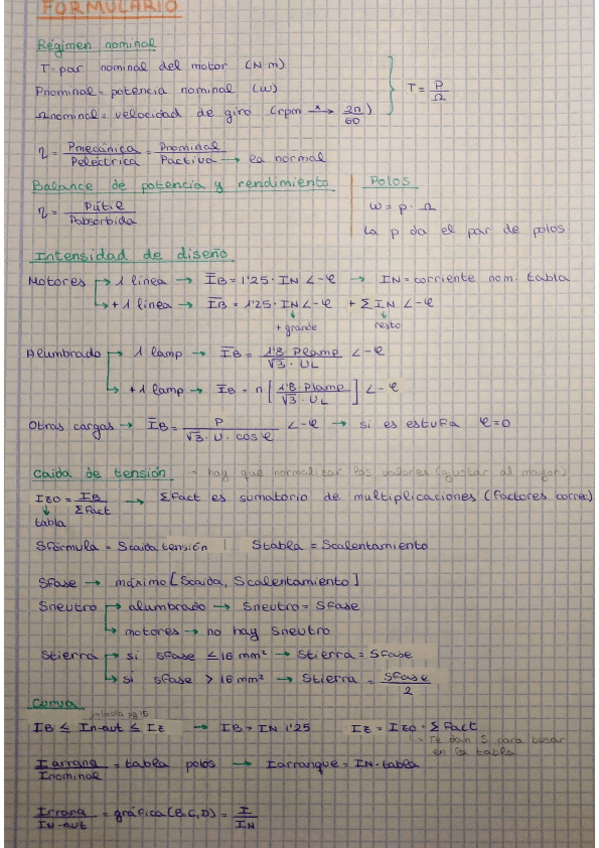 FORMULARIO
Régimen nominal
T = par nominal del motor (N·m)
Pnominal = potencia nominal (W)
T = P/Ω
Ωnominal = velocidad de giro (rpm x→ 2π/60)
η = Pmecánica/Peléctrica = Pnominal/Pactiva → la normal
Balance de potencia y rendimiento
η = Pútil/Pabsorbida
Polos
ω = p · Ω
La p da el par de polos
Intensidad de diseño
Motores → 1 linea → IB = 1'25 · IN ∠-φ → IN = corriente nom. tabla
→ +1 linea → IB = 1'25 · IN ∠-φ + Σ IN ∠-φ
+ grande
resto
Alumbrado → 1 lamp → IB = 1'8 Plamp/√3 · UL ∠-φ
→ +1 lamp → IB = n [1'8 Plamp/√3 · UL] ∠-φ
Otras cargas → IB = P/√3 · U · cos φ ∠-φ → si es estufa φ=0
Caida de tensión → hay que normalizar los valores (ajustar al mayor)
IZO = IB/ΣFact → ΣFact es sumatorio de multiplicaciones (factores correc)
tabla
Sfórmula = Scaida tensión | Stabla = Scalentamiento
Sfase → máximo [Scaida, Scalentamiento]
Sneutro → alumbrado → Sneutro = Sfase
→ motores → no hay Sneutro
Stierra → si Sfase ≤ 16 mm² → Stierra = Sfase
→ si Sfase > 16 mm² → Stierra = Sfase/2
Curva
IB ≤ In-aut ≤ IZ → IB = IN 1'25 IZ = IZO · ΣFact
en la tabla
I arranq/Inominal = tabla polos → Iarranque = IN · tabla
Iarranq/IN-aut = gráfica (B,C,D) = I/IN